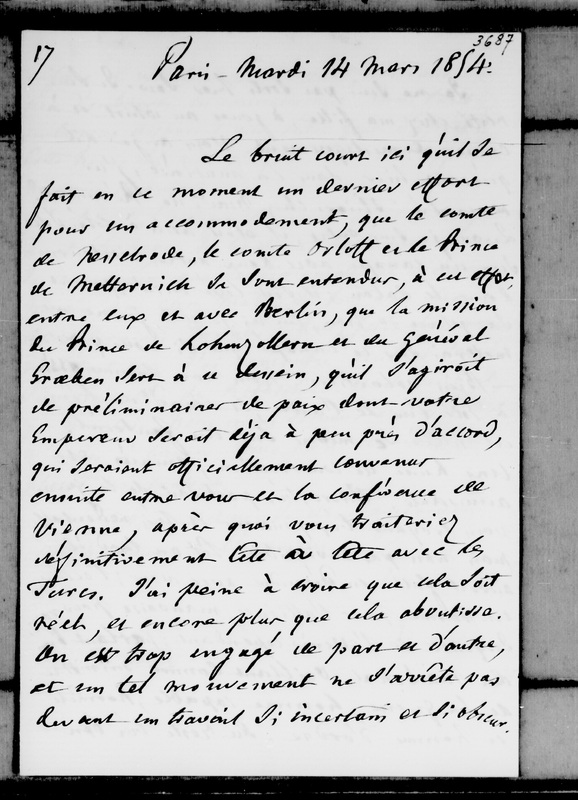 3687
17
Paris - Mardi 14 Mars 1854.
Le bruit court ici qu'il se
fait en ce moment un dernier effort
pour un accommodement, que le comte
de Nesselrode, le comte Orloff et le Prince
de Metternich se sont entendus, à cet effet,
entre eux et avec Berlin, que la mission
du Prince de Hohenzollern et du Général
Groeben sert à ce dessein, qu'il s'agiroit
de préliminaires de paix dont votre
Empereur seroit déja à peu près d'accord,
qui seraient officiellement convenus
ensuite entre vous et la conférence de
Vienne, après quoi vous traiteriez
définitivement tête à tête avec les
Turcs. J'ai peine à croire que cela soit
réel, et encore plus que cela aboutisse.
On est trop engagé de part et d'autre,
et un tel mouvement ne s'arrête pas
devant un travail si incertain et si obscur.